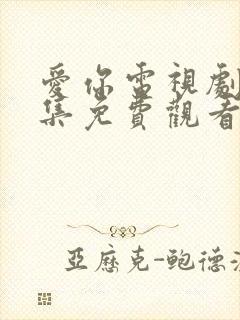 愛你雷視劇
集免費觀看
亞歷克-鮑德溫